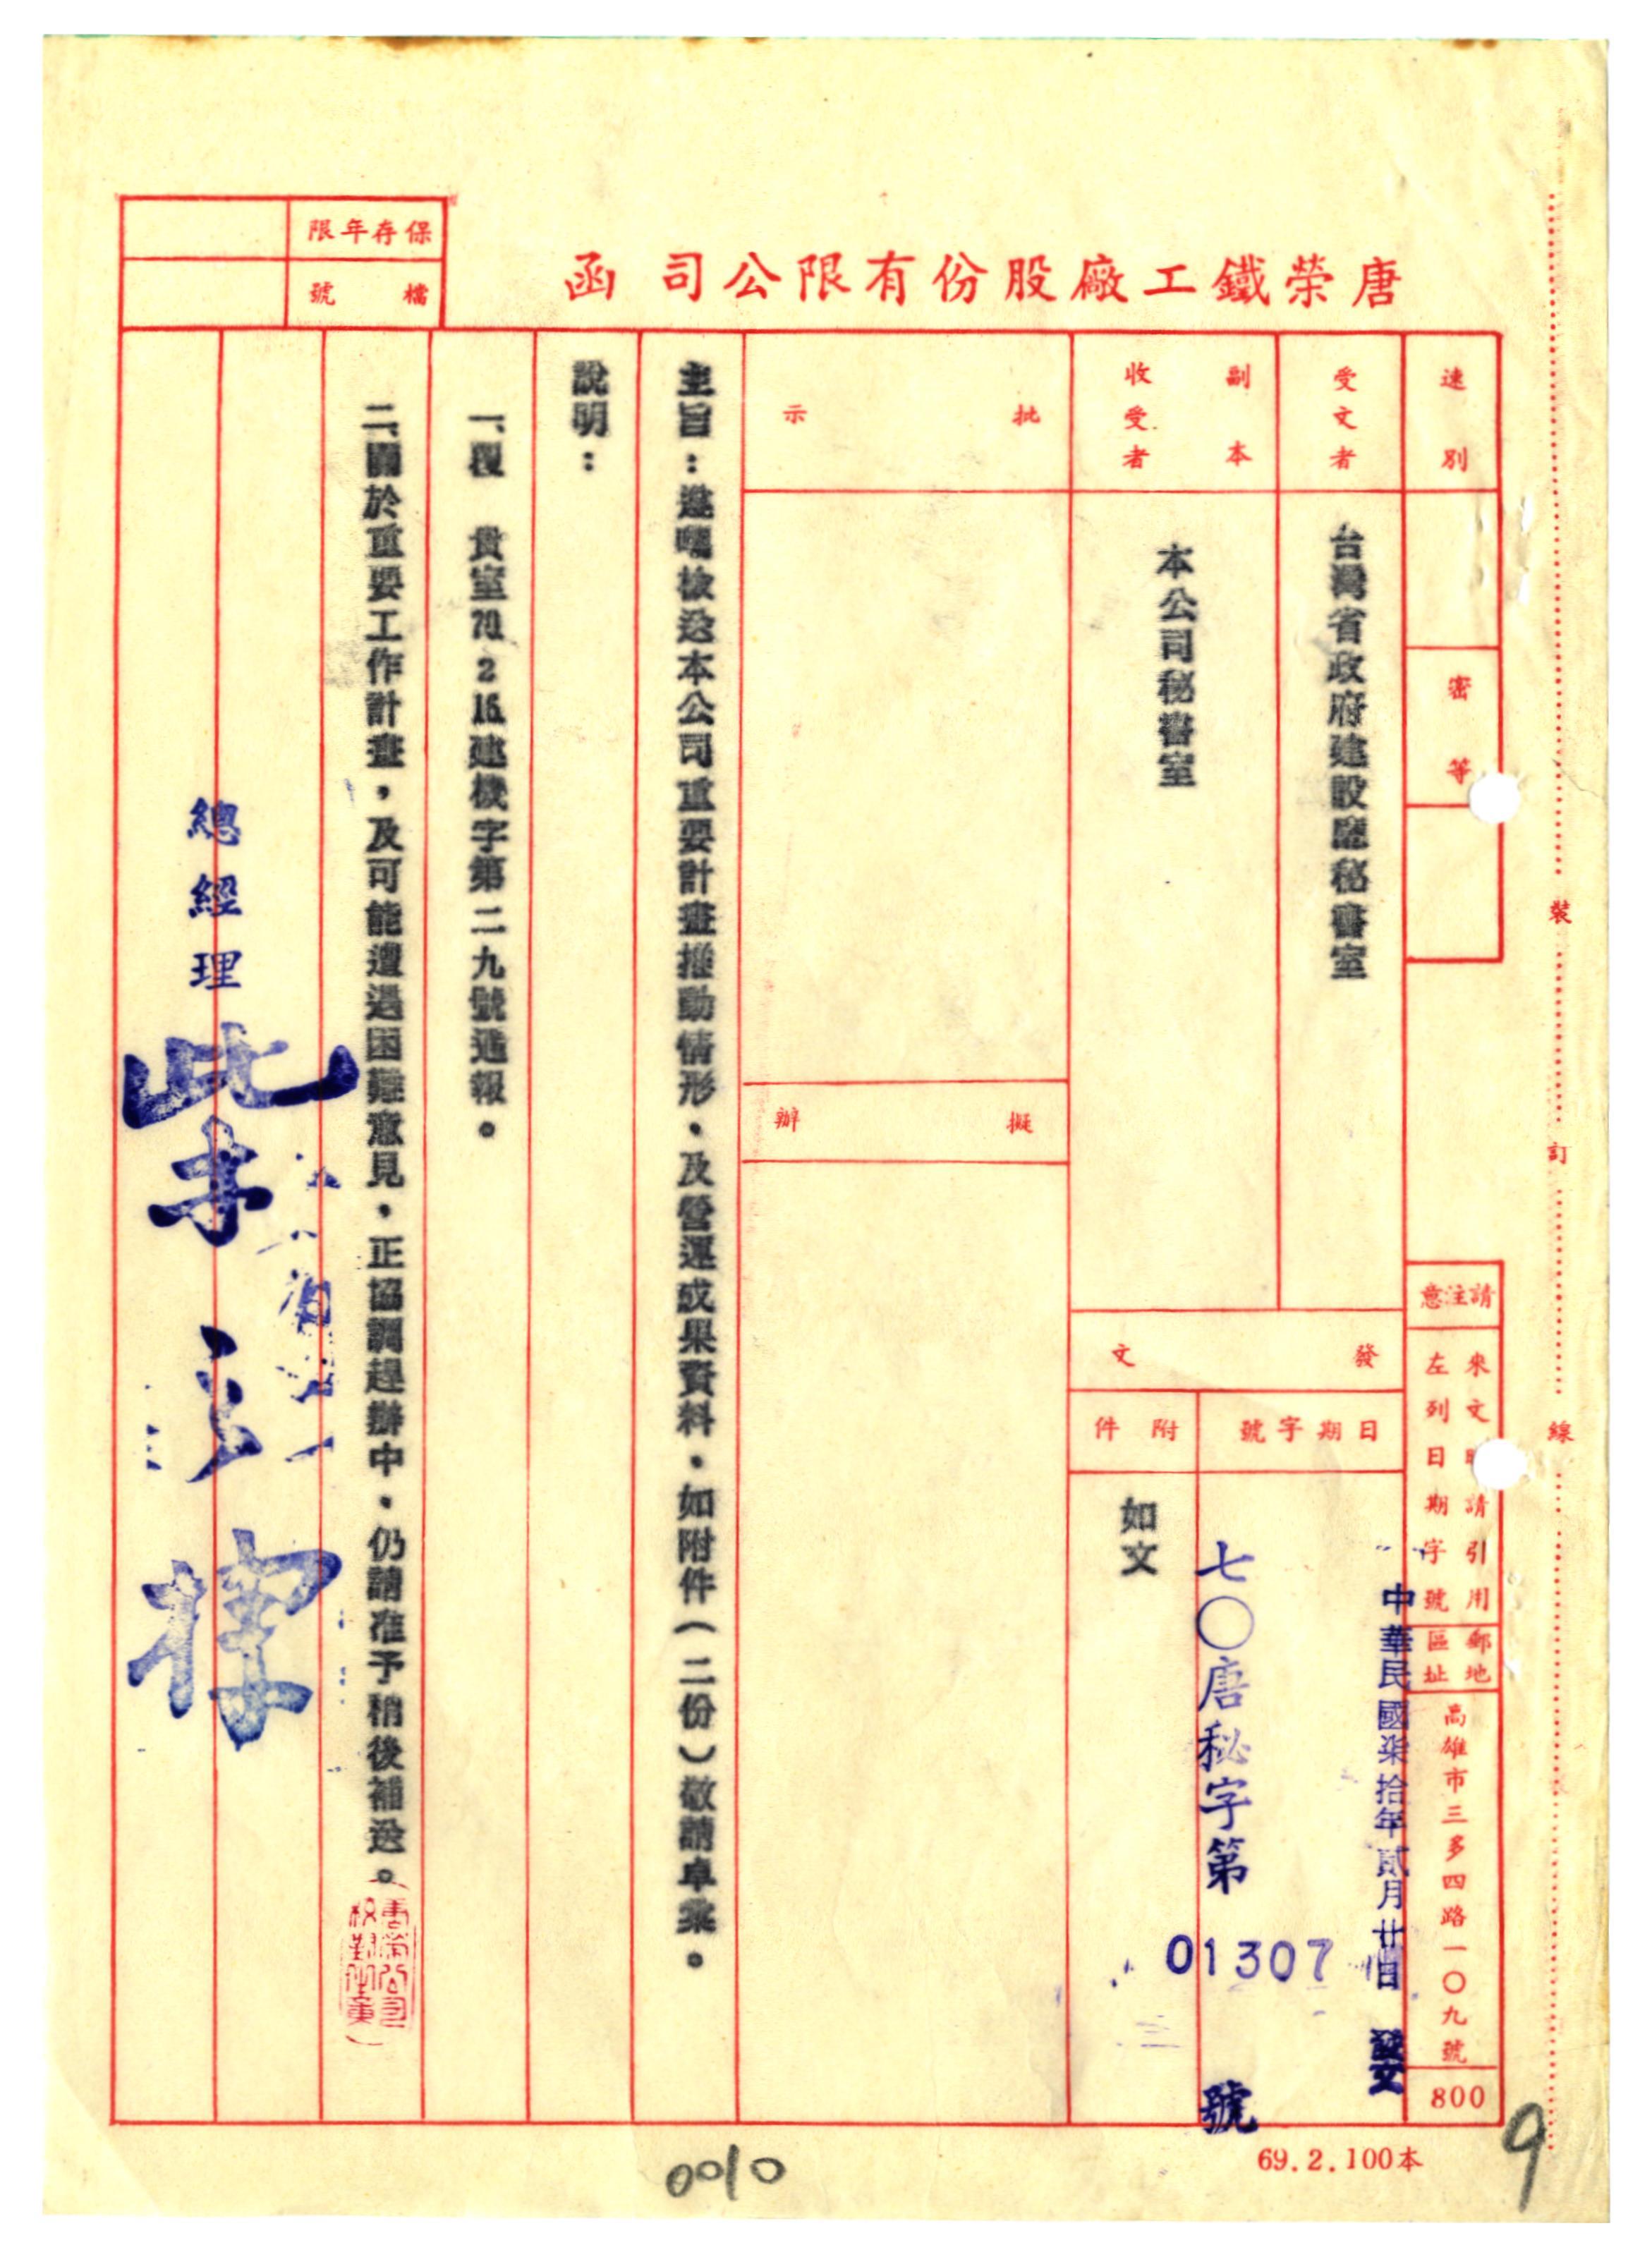 唐榮鐵工廠股份有限公司 函
保存年限
檔號
速別
密等
受文者
台灣省政府建設廳秘書室
副本收受者
本公司秘書室
批示
擬辦
請注意
來文時請引用
左列日期字號
郵區
地址
高雄市三多四路一〇九號
800
發文
日期字號
附件
中華民國柒拾年貳月廿日 發文
七〇唐秘字第 01307 號
如文
主旨：遵囑檢送本公司重要計畫推動情形、及營運成果資料，如附件（二份）敬請卓察。
說明：
一、覆 貴室70. 2 16.建機字第二九號通報。
二、關於重要工作計畫，及可能遭遇困難意見，正協調趕辦中，仍請准予稍後補送。
總經理
裝
訂
線
69.2.100本
0010
9